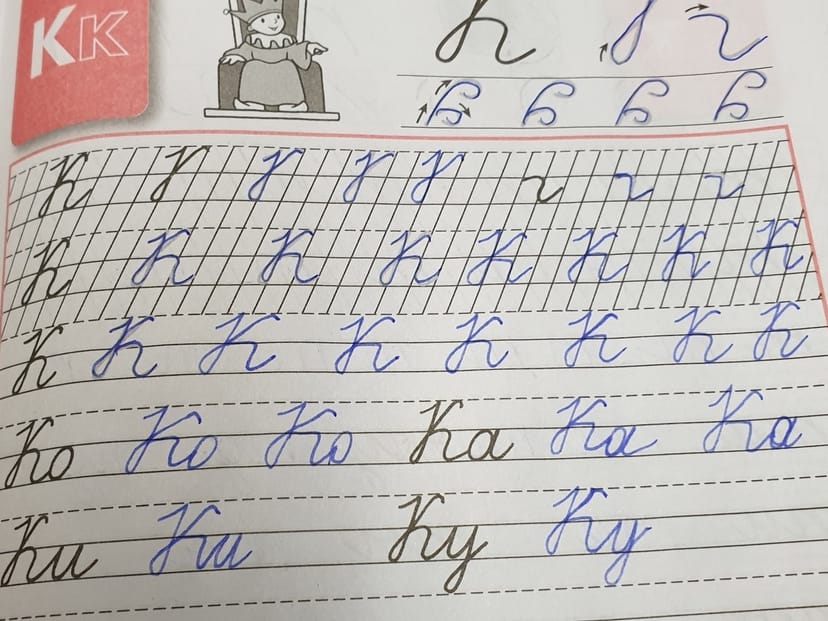 К К
К
К
К К К К К К К К
К К К К К К К К
Ко Ко Ко Ка Ка Ка
Ки Ки Ку Ку